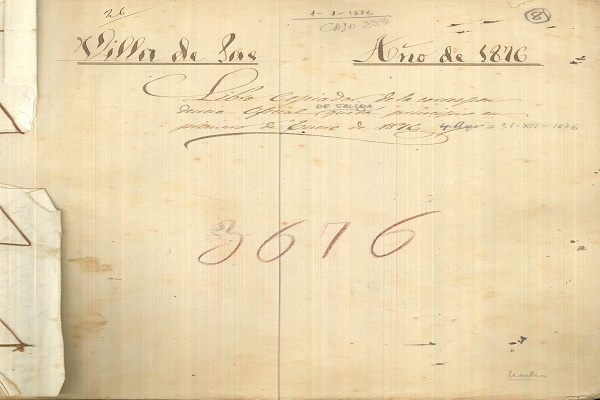 26
1-1-1876
CAJA
8
Villa de Año de 1876
Libro Copiador de la correspon
dencia Oficial DE SALIDA que da principio en
primero de Enero de 1876 31-XII-1876
3676